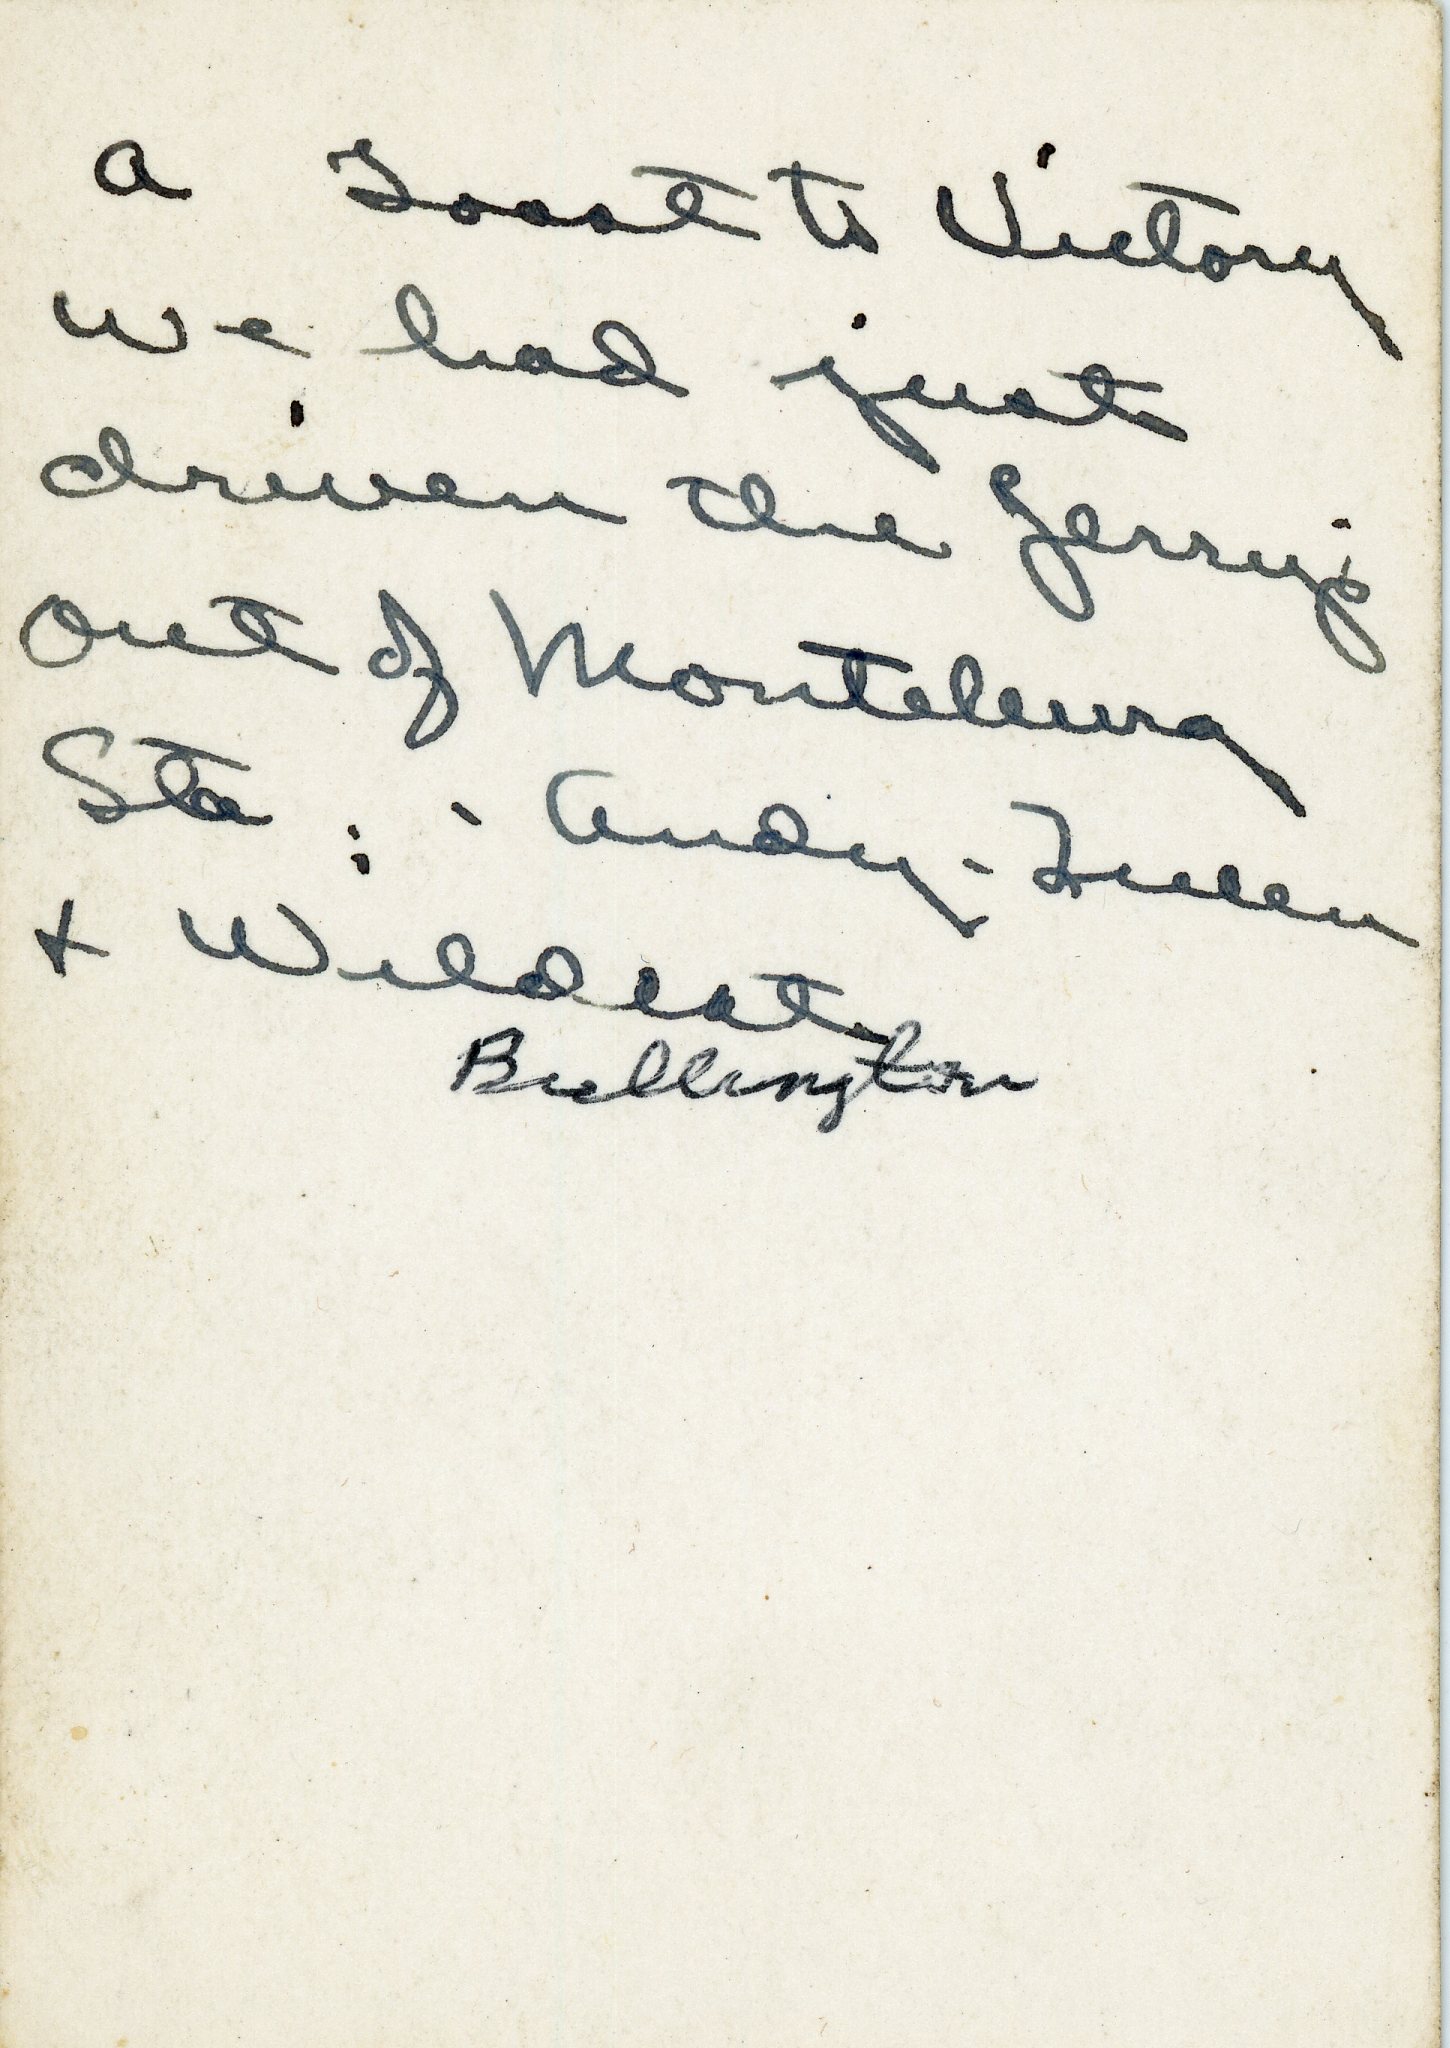 a Toast to Victory
we had just
driven the Jerrys
out of Monteburg
Sta. - Andy -
& Wildcat
Bullington